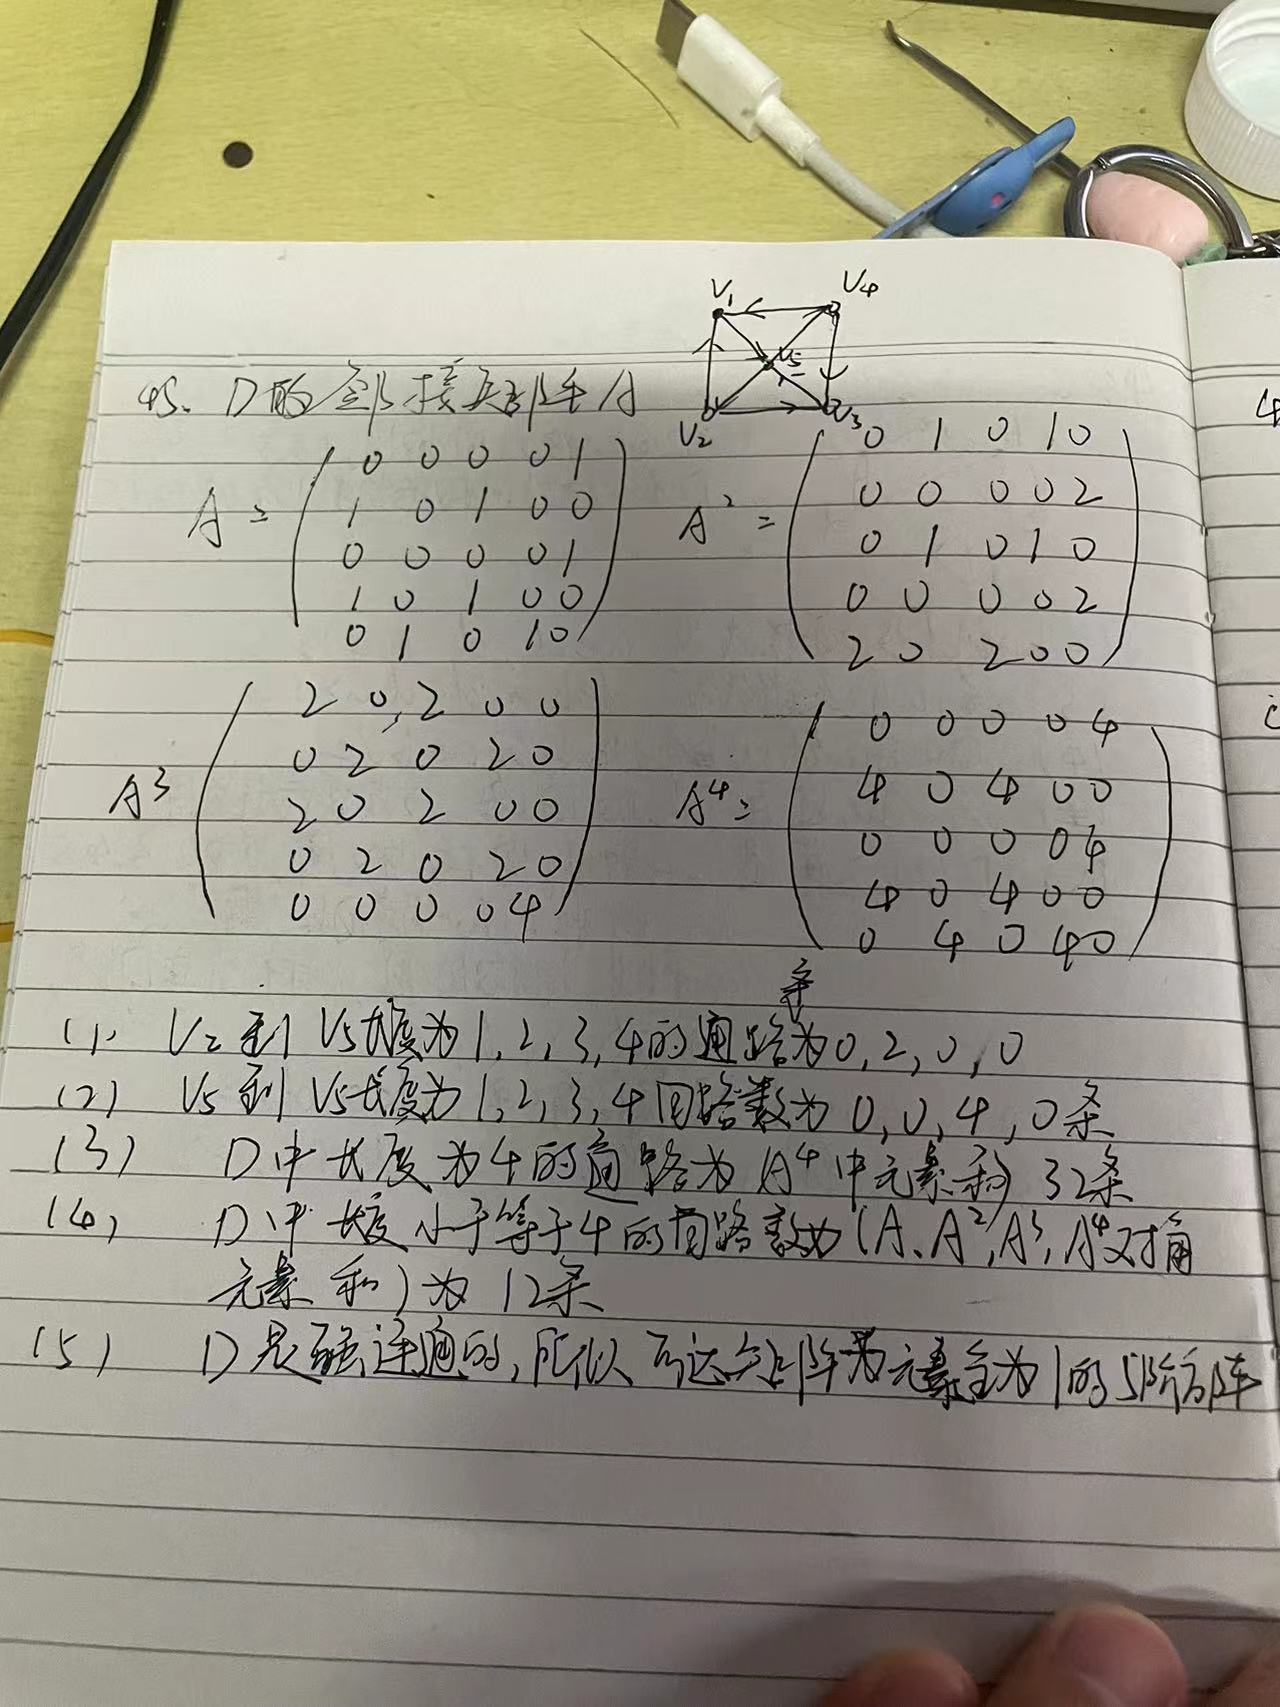 V₁ V₄
V₅
V₂ V₃
45. D的邻接矩阵A
A =
0 0 0 0 1
1 0 1 0 0
0 0 0 0 1
1 0 1 0 0
0 1 0 1 0
A² =
0 1 0 1 0
0 0 0 0 2
0 1 0 1 0
0 0 0 0 2
2 0 2 0 0
A³
2 0 2 0 0
0 2 0 2 0
2 0 2 0 0
0 2 0 2 0
0 0 0 0 4
A⁴ =
0 0 0 0 4
4 0 4 0 0
0 0 0 0 4
4 0 4 0 0
0 4 0 4 0
条
(1). V₂到V₅长度为1,2,3,4的通路为0,2,0,0
(2) V₅到V₅长度为1,2,3,4回路数为0,0,4,0条
(3) D中长度为4的通路为A⁴中元素和 32条
(4) D中长度小于等于4的回路数为(A、A²,A³,A⁴对角
元素和)为12条
(5) D是强连通的,所以可达矩阵为元素全为1的5阶方阵